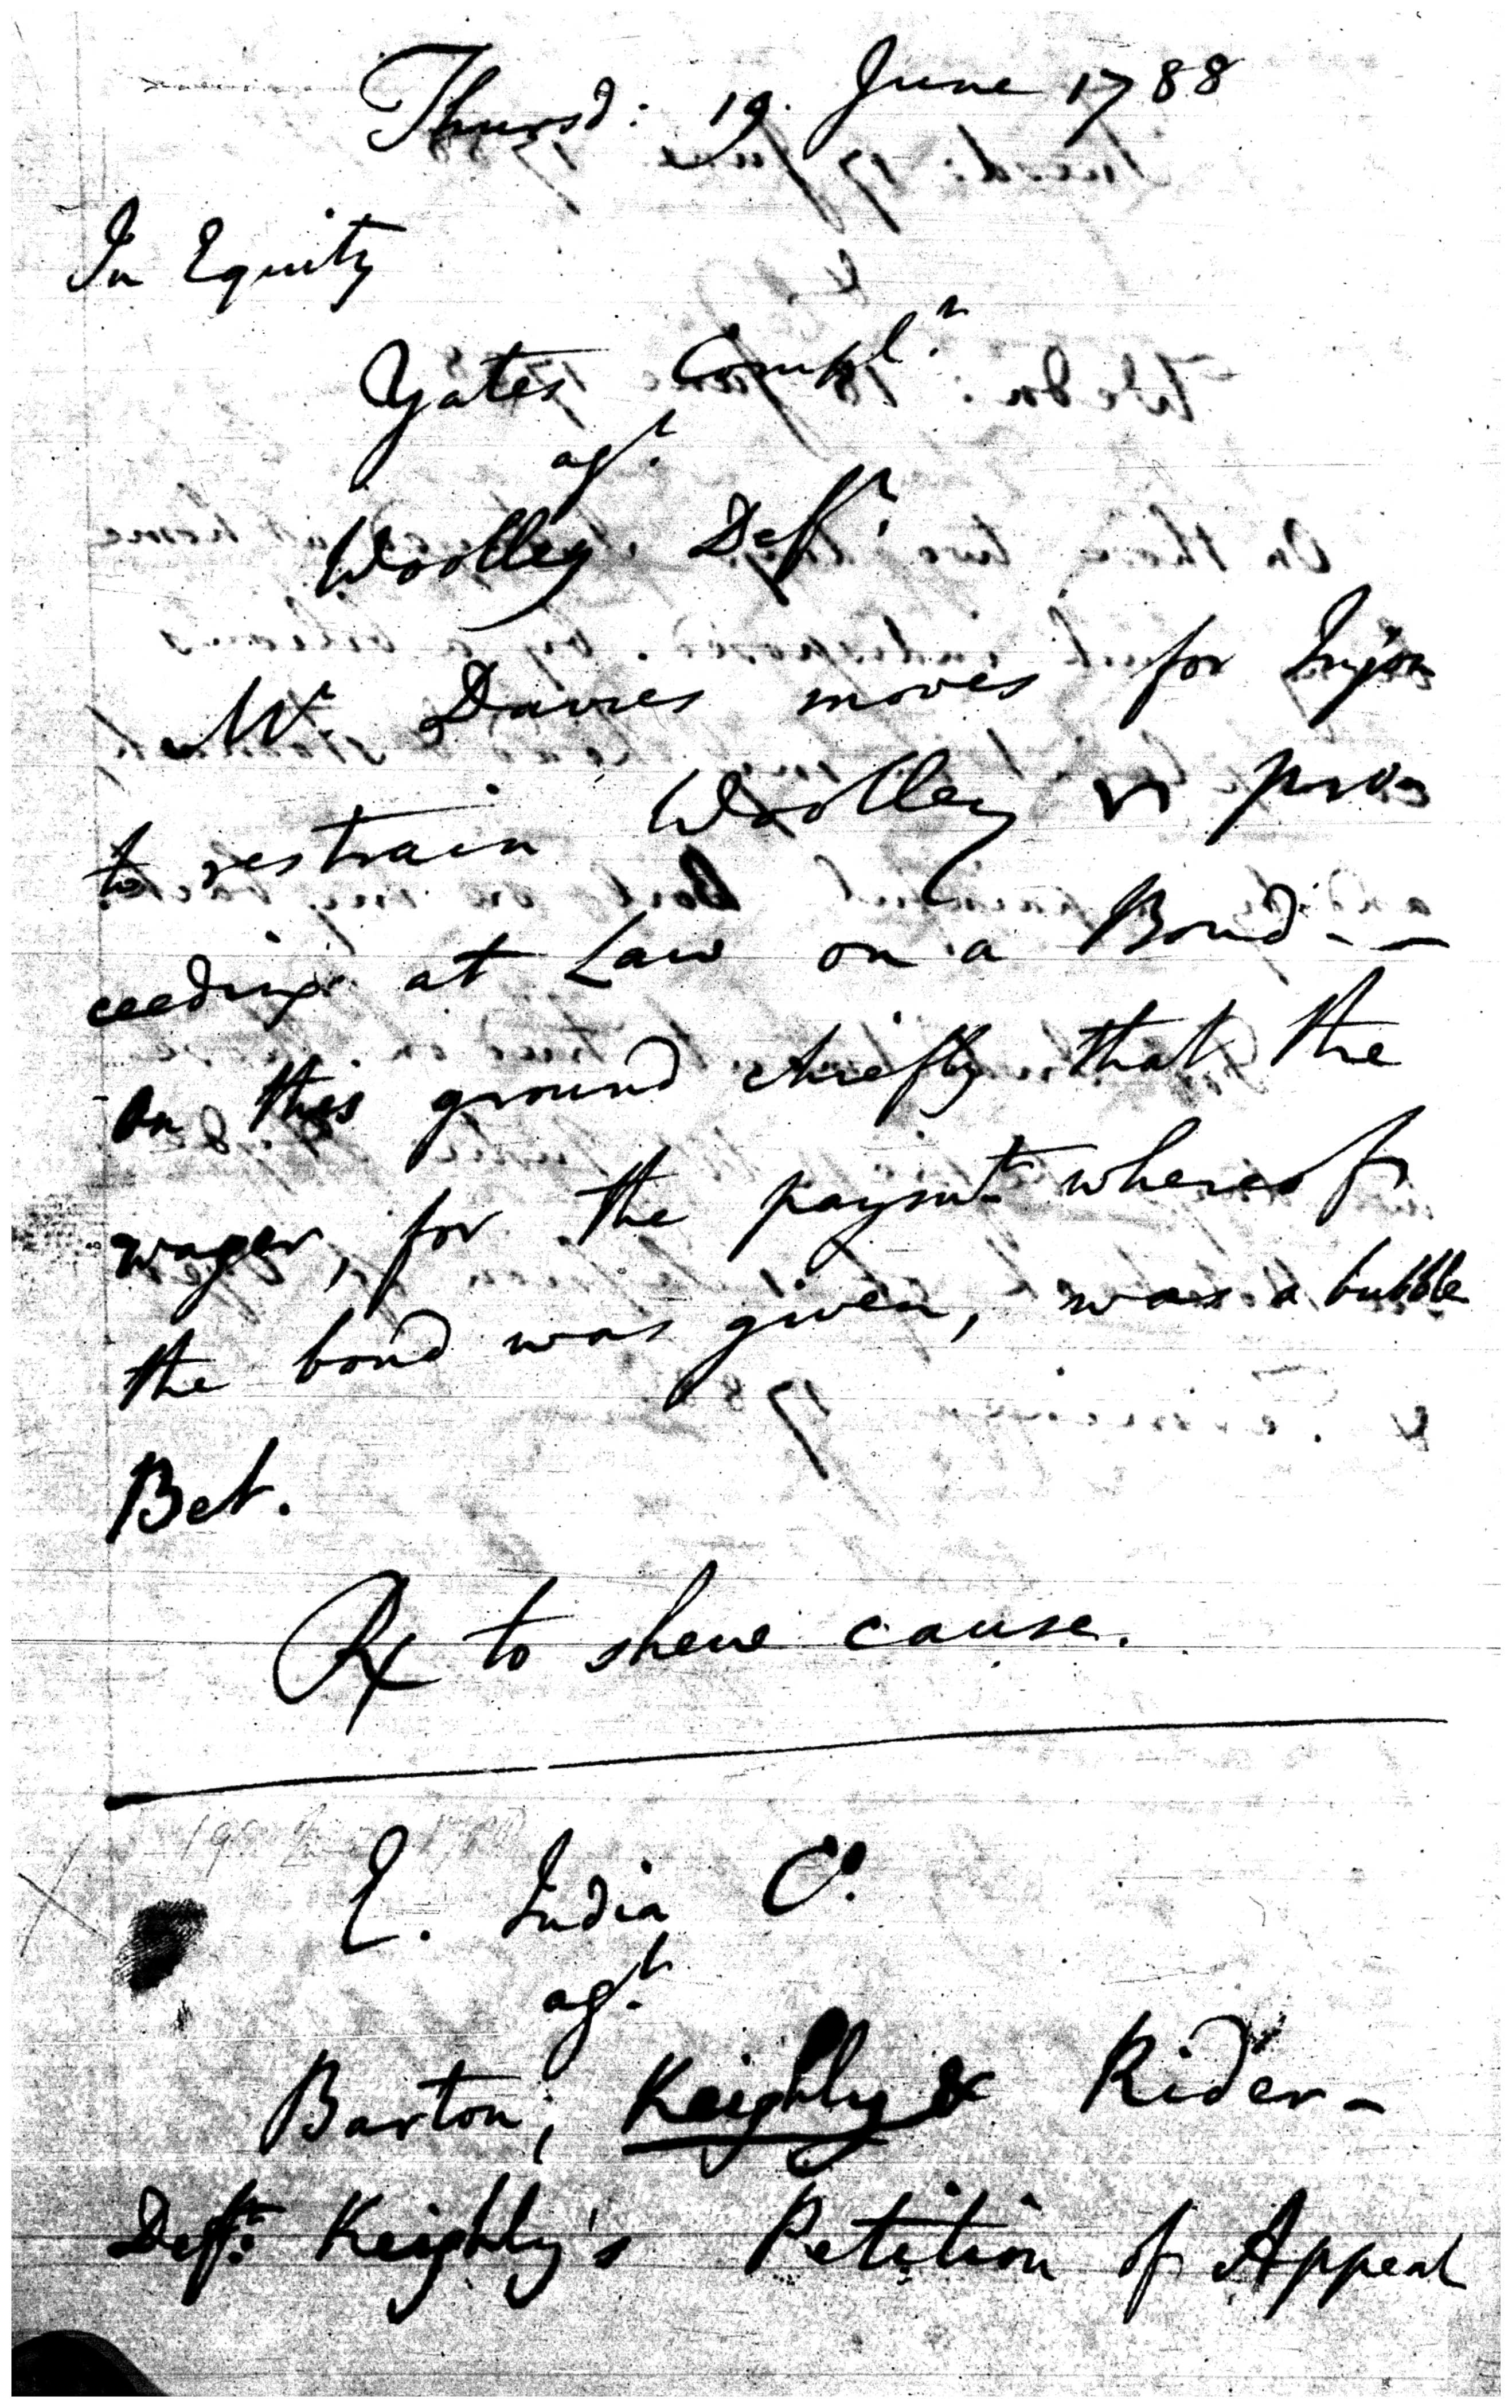 Thursd: 19. June 1788
In Equity
Yates Complt.
agt.
Woolley Deft.
Mr. Davies moves for Injon
to restrain Woolley fr pro=
ceedings at Law on a Bond--
on this ground chiefly that the
wager, for the paymt whereof
the bond was given, was a bubble
Bet.
Rx to shew cause.
E. India Co.
agt.
Barton, Keighly & Rider-
Deft. Keighly's Petition of Appeal